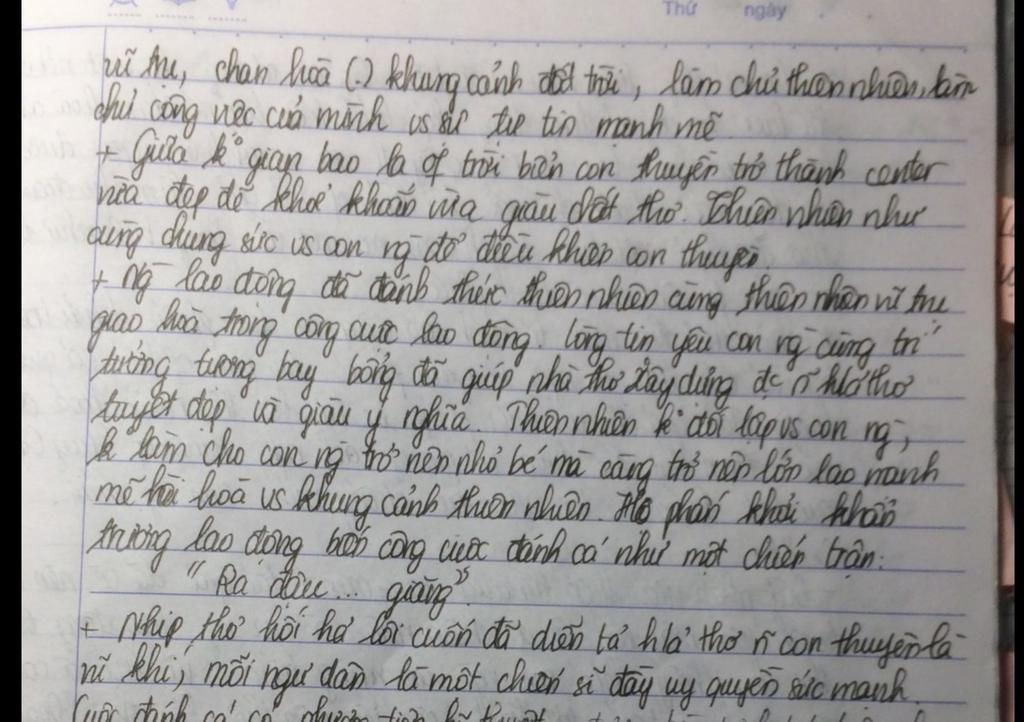 Thứ ngày
vũ trụ, chan hoà (.) khung cảnh đất trời, làm chủ thiên nhiên, làm
chủ công việc của mình vs sự tự tin mạnh mẽ.
+ Giữa k° gian bao la of trời biển con thuyền trở thành center
vừa đẹp đẽ khoẻ khoắn vừa giàu chất thơ. Thiên nhiên như
cùng chung sức vs con ng để điều khiển con thuyền
+ Ng lao động đã đánh thức thiên nhiên cùng thiên nhiên vũ trụ
giao hoà trong công cuộc lao động, lòng tin yêu con ng cùng trí
tưởng tượng bay bổng đã giúp nhà thơ xây dựng đc ~ h/ả thơ
tuyệt đẹp và giàu ý nghĩa. Thiên nhiên k° đối lập vs con ng,
k làm cho con ng trở nên nhỏ bé mà càng trở nên lớn lao mạnh
mẽ hài hoà vs khung cảnh thiên nhiên. Họ phấn khởi khẩn
trương lao động biến công cuộc đánh cá như một chiến trận:
"Ra đậu ... giăng"
+ Nhịp thơ hối hả lôi cuốn đã diễn tả h/ả thơ ~ con thuyền là
vũ khí, mỗi ngư dân là một chiến sĩ đầy uy quyền sức mạnh.
Cuộc đánh cá có phương tiện kĩ thuật